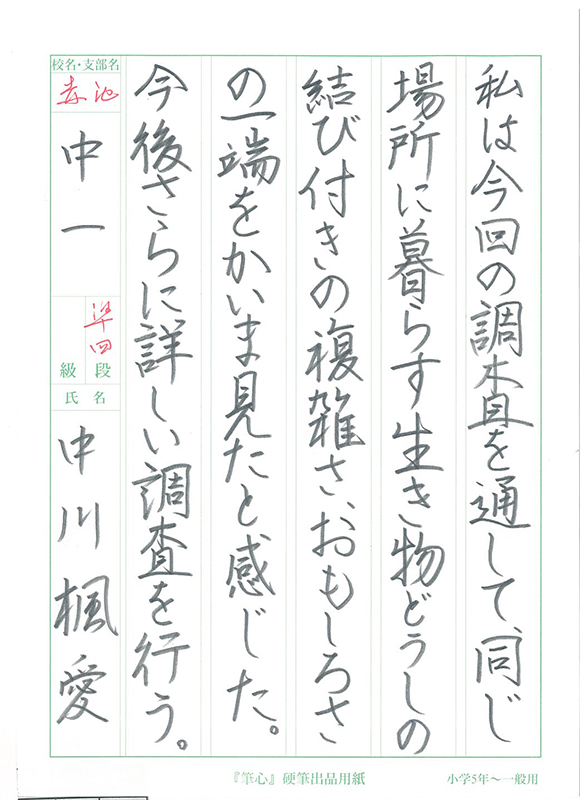 私は今回の調査を通して、同じ
場所に暮らす生き物どうしの
結び付きの複雑さ、おもしろさ
の一端をかいま見たと感じた。
今後さらに詳しい調査を行う。
校名・支部名
赤池
中一
準四
段
級
氏名
中川楓愛
『筆心』硬筆出品用紙
小学5年〜一般用